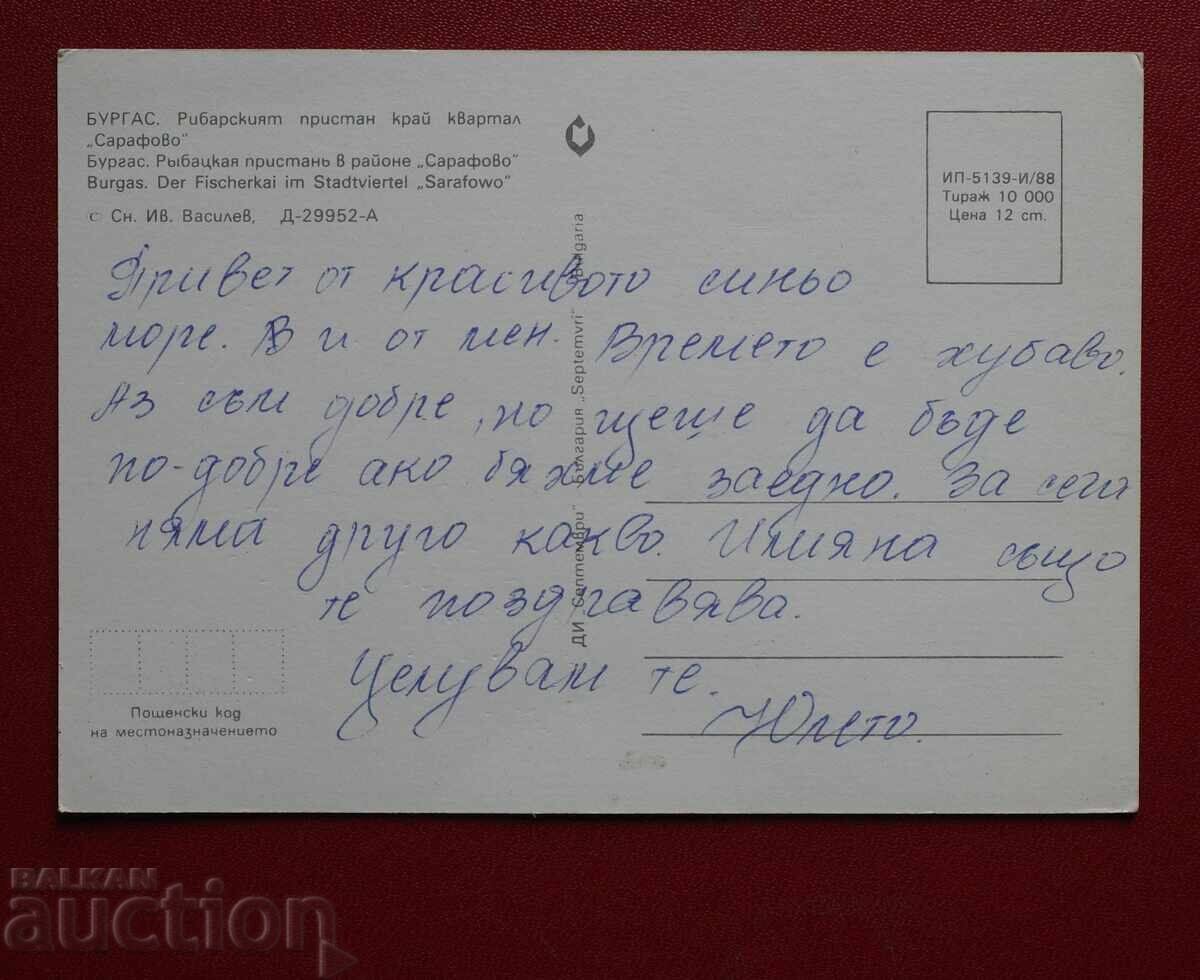 БУРГАС. Рибарският пристан край квартал
„Сарафово"
Бургас. Рыбацкая пристань в районе „Сарафово"
Burgas. Der Fischerkai im Stadtviertel „Sarafowo"
© Сн. Ив. Василев, Д-29952-А
ИП-5139-И/88
Тираж 10 000
Цена 12 ст.
Привет от красивото синьо
море. В и от мен. Времето е хубаво.
Аз съм добре, но щеше да бъде
по-добре ако бяхме заедно. За сега
няма друго какво. Илияна също
те поздравява.
Целувам те.
Юлето.
ДИ „Септември" България „Septemvri" Bulgaria
Пощенски код
на местоназначението
BALKAN
auction